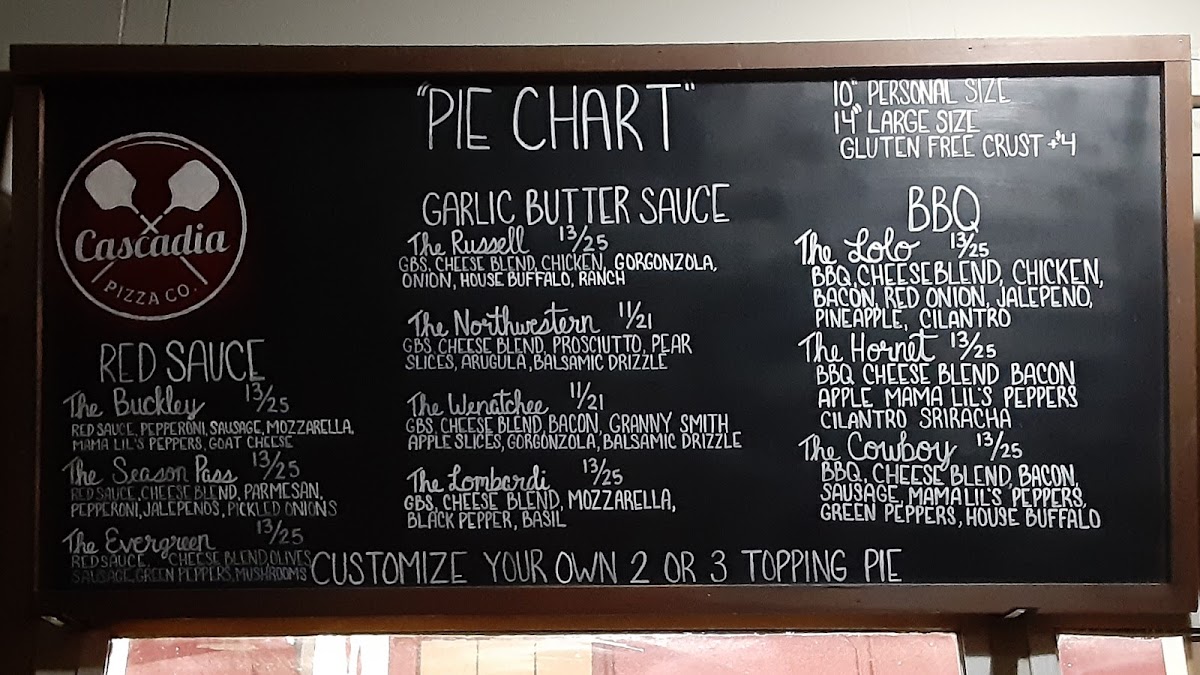 "PIE CHART"
10" PERSONAL SIZE
14" LARGE SIZE
GLUTEN FREE CRUST +$4
Cascadia
PIZZA CO.
RED SAUCE
The Buckley 13/25
RED SAUCE, PEPPERONI, SAUSAGE, MOZZARELLA,
MAMA LIL'S PEPPERS, GOAT CHEESE
The Season Pass 13/25
RED SAUCE, CHEESE BLEND, PARMESAN,
PEPPERONI, JALEPENOS, PICKLED ONIONS
The Evergreen 13/25
RED SAUCE, CHEESE BLEND, OLIVES
SAUSAGE, GREEN PEPPERS, MUSHROOMS
GARLIC BUTTER SAUCE
The Russell 13/25
GBS, CHEESE BLEND, CHICKEN, GORGONZOLA,
ONION, HOUSE BUFFALO, RANCH
The Northwestern 11/21
GBS, CHEESE BLEND, PROSCIUTTO, PEAR
SLICES, ARUGULA, BALSAMIC DRIZZLE
The Wenatchee 11/21
GBS, CHEESE BLEND, BACON, GRANNY SMITH
APPLE SLICES, GORGONZOLA, BALSAMIC DRIZZLE
The Lombardi 13/25
GBS, CHEESE BLEND, MOZZARELLA,
BLACK PEPPER, BASIL
BBQ
The Lolo 13/25
BBQ, CHEESE BLEND, CHICKEN,
BACON, RED ONION, JALEPENO,
PINEAPPLE, CILANTRO
The Hornet 13/25
BBQ CHEESE BLEND BACON
APPLE MAMA LIL'S PEPPERS
CILANTRO SRIRACHA
The Cowboy 13/25
BBQ, CHEESE BLEND, BACON,
SAUSAGE, MAMA LIL'S PEPPERS,
GREEN PEPPERS, HOUSE BUFFALO
CUSTOMIZE YOUR OWN 2 OR 3 TOPPING PIE